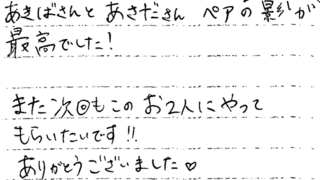 あきばさんと あさださん ペアの 影が
最高でした!
また次回もこの お2人にやって
もらいたいです!!
ありがとうございました♡